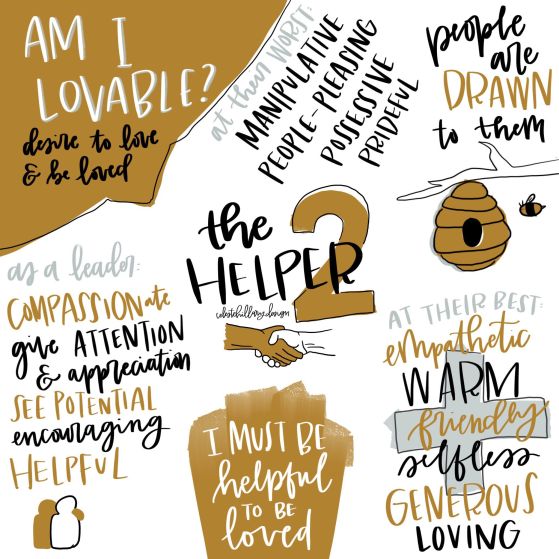 AM I
LOVABLE?
desire to love
& be loved
at their worst:
MANIPULATIVE
PEOPLE-PLEASING
POSSESSIVE
PRIDEFUL
people
are
DRAWN
to them
the
HELPER
2
as a leader:
COMPASSIONate
give ATTENTION
& appreciation
SEE POTENTIAL
encouraging
HELPFUL
I MUST BE
helpful
TO BE
loved
AT THEIR BEST:
empathetic
WARM
friendly
selfless
GENEROUS
LOVING